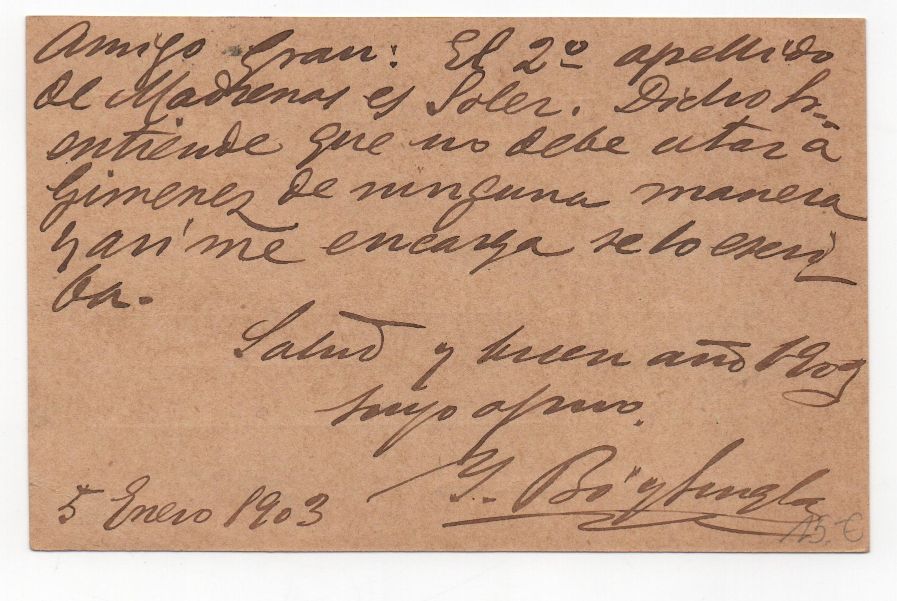 Amigo Gran: El 2º apellido
de Madrenas es Soler. Dicho Sr.
entiende que no debe citar á
Gimenez de ninguna manera
y asi me encarga se lo escri
ba.
Salud y buen año 1903
suyo afmo.
J. Bó y Singla
5 Enero 1903
15.€